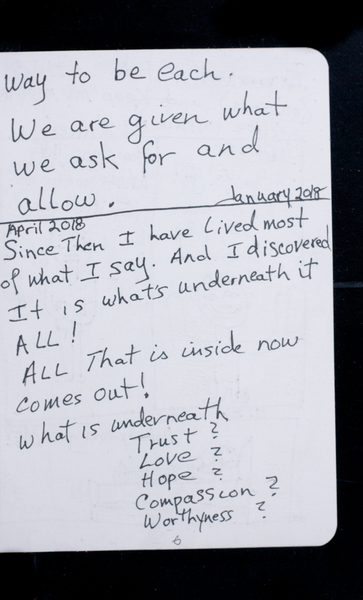 way to be each.
We are given what
we ask for and
allow.
January 2018
April 2018
Since Then I have Lived most
of what I say. And I discovered
It is what's underneath it
ALL!
ALL That is inside now
comes out!
what is underneath
Trust ?
Love ?
Hope ?
Compassion ?
Worthyness ?
6